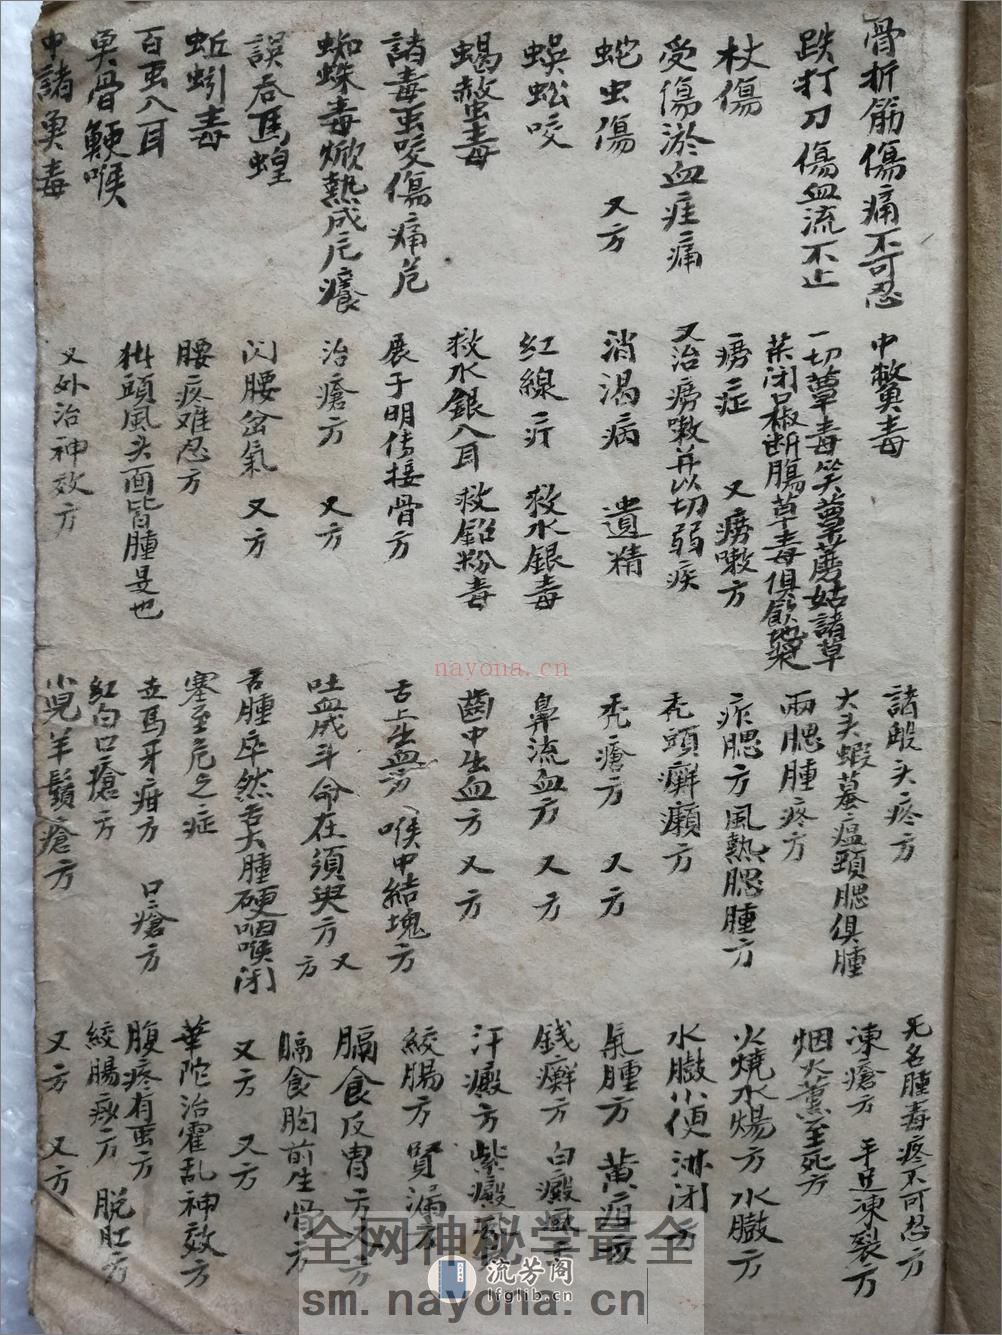 骨折筋傷痛不可忍
跌打刀傷血流不止
杖傷
受傷淤血疰痛
蛇虫傷 又方
蜈蚣咬
蝎螫毒
諸毒虫咬傷痛危
蜘蛛毒焮熱成危瀼
誤吞馬蝗
蚯蚓毒
百虫入耳
奠骨鯁喉
中諸奠毒
中鱉毒
一切蕈毒笑蕈蘑姑諸草
菜閉口椒断腸草毒俱飲地漿
癆症 又癆嗽方
又治癆嗽并以切弱疾
消渴病 遺精
紅線疔 救水銀毒
救水銀入耳 救鉛粉毒
展子明传接骨方
治瘡方 又方
闪腰岔氣 又方
腰疼难忍方
掛頭風头面皆腫是也
又外治神效方
諸般头疼方
大头蝦蟇瘟頸腮俱腫
兩腮腫疼方
痄腮方 風熱腮腫方
禿頭癬癩方
禿瘡方 又方
鼻流血方 又方
齒中生血方 又方
舌上生血方 喉中結塊方
吐血成斗命在須臾方 又方
舌腫卒然舌大腫硬咽喉闭
塞至危之症
走馬牙疳方 口瘡方
紅白口瘡方
小児羊鬚瘡方
无名腫毒疼不可忍方
凍瘡方 手足凍裂方
烟火薰至死方
火燒水煬方 水臌方
水臌小便淋闭方
氣腫方 黄疸
錢癬方 白癜風
汗癜方 紫癜
絞腸方 腎漏方
膈食反胃方
膈食胸前生骨方
又方 又方
華陀治霍乱神效方
腹疼有虫方
絞腸痧方 脱肛方
又方 又方
nayona.cn
全网神秘学最全
sm.nayona.cn
流芳阁
lfglib.cn